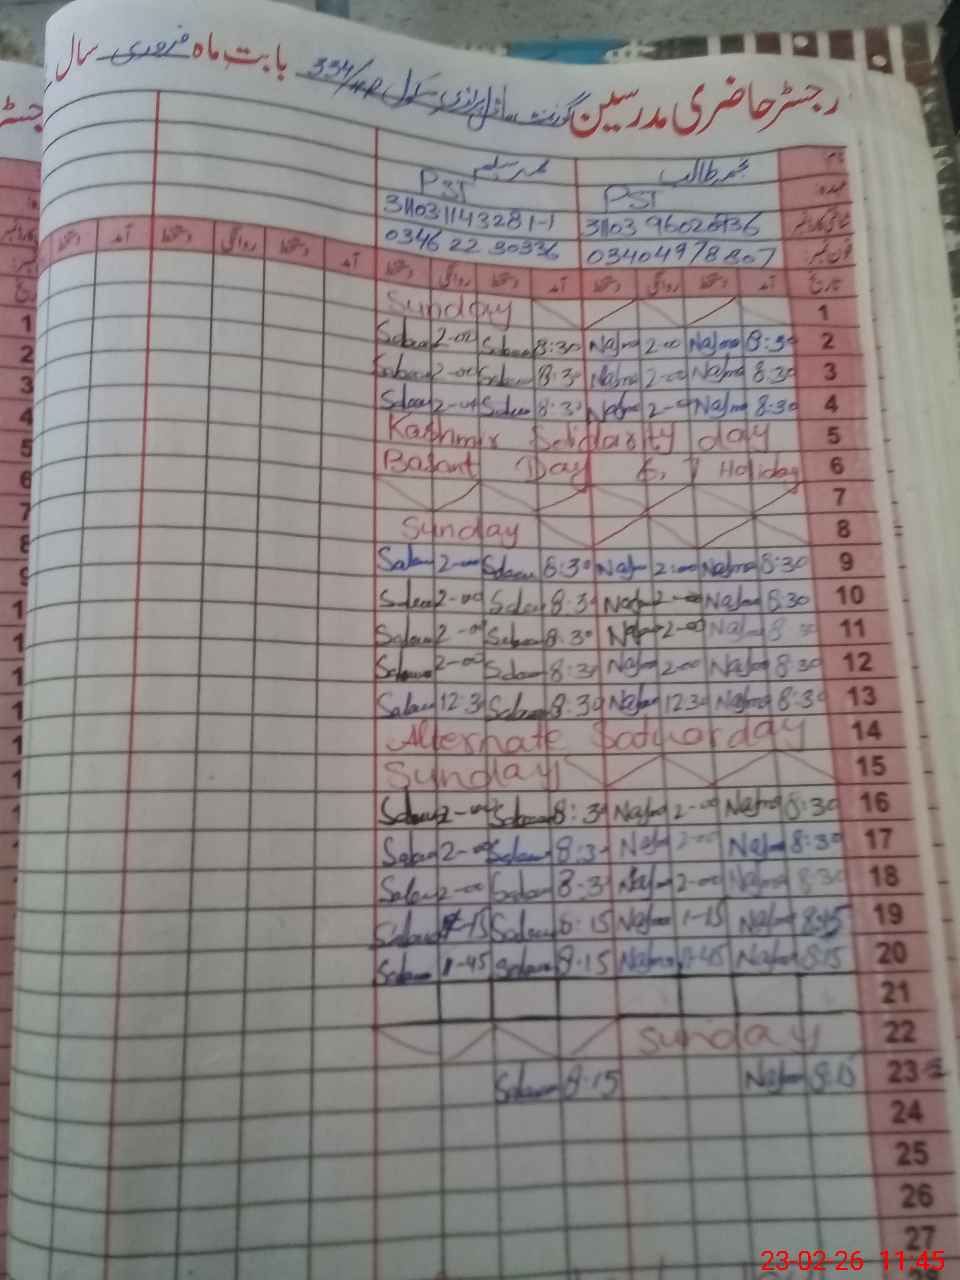 رجسٹر حاضری مدرسین گورنمنٹ ماڈل پرائمری سکول 334/HR بابت ماہ فروری سال
نام محمد طالب محمد سلیم
عہدہ PST PST
31103 31103114328 1-1
فون نمبر 03404978807 0346 22 30336
تاریخ آمد دستخط روانگی دستخط آمد دستخط روانگی دستخط آمد دستخط روانگی دستخط آمد دستخط
Sunday 1
Saleem 2-00 Saleem 8:30 Najma 2-00 Najma 8:30 2
Saleem 2-00 Saleem 8:30 Najma 2-00 Najma 8:30 3
Saleem 2-00 Saleem 8:30 Najma 2-00 Najma 8:30 4
Kashmir Solidarity day 5
Basant Day 6, 7 Holiday 6
7
Sunday 8
Saleem 2-00 Saleem 8:30 Najma 2:00 Najma 8:30 9
Saleem 2-00 Saleem 8:30 Najma 2-00 Najma 8:30 10
Saleem 2-00 Saleem 8:30 Najma 2-00 Najma 8:30 11
Saleem 2-00 Saleem 8:30 Najma 2-00 Najma 8:30 12
Saleem 12:30 Saleem 8:30 Najma 12:30 Najma 8:30 13
Alternate Saturday 14
Sunday 15
Saleem 2-00 Saleem 8:30 Najma 2-00 Najma 8:30 16
Saleem 2-00 Saleem 8:30 Najma 2-00 Najma 8:30 17
Saleem 2-00 Saleem 8:30 Najma 2-00 Najma 8:30 18
Saleem 1-15 Saleem 8:15 Najma 1-15 Najma 19
Saleem 1-45 Saleem 8:15 Najma 1-45 Najma 8:15 20
21
Sunday 22
Saleem 8:15 Najma 8:15 23
24
25
26
27
23-02-26 11:45